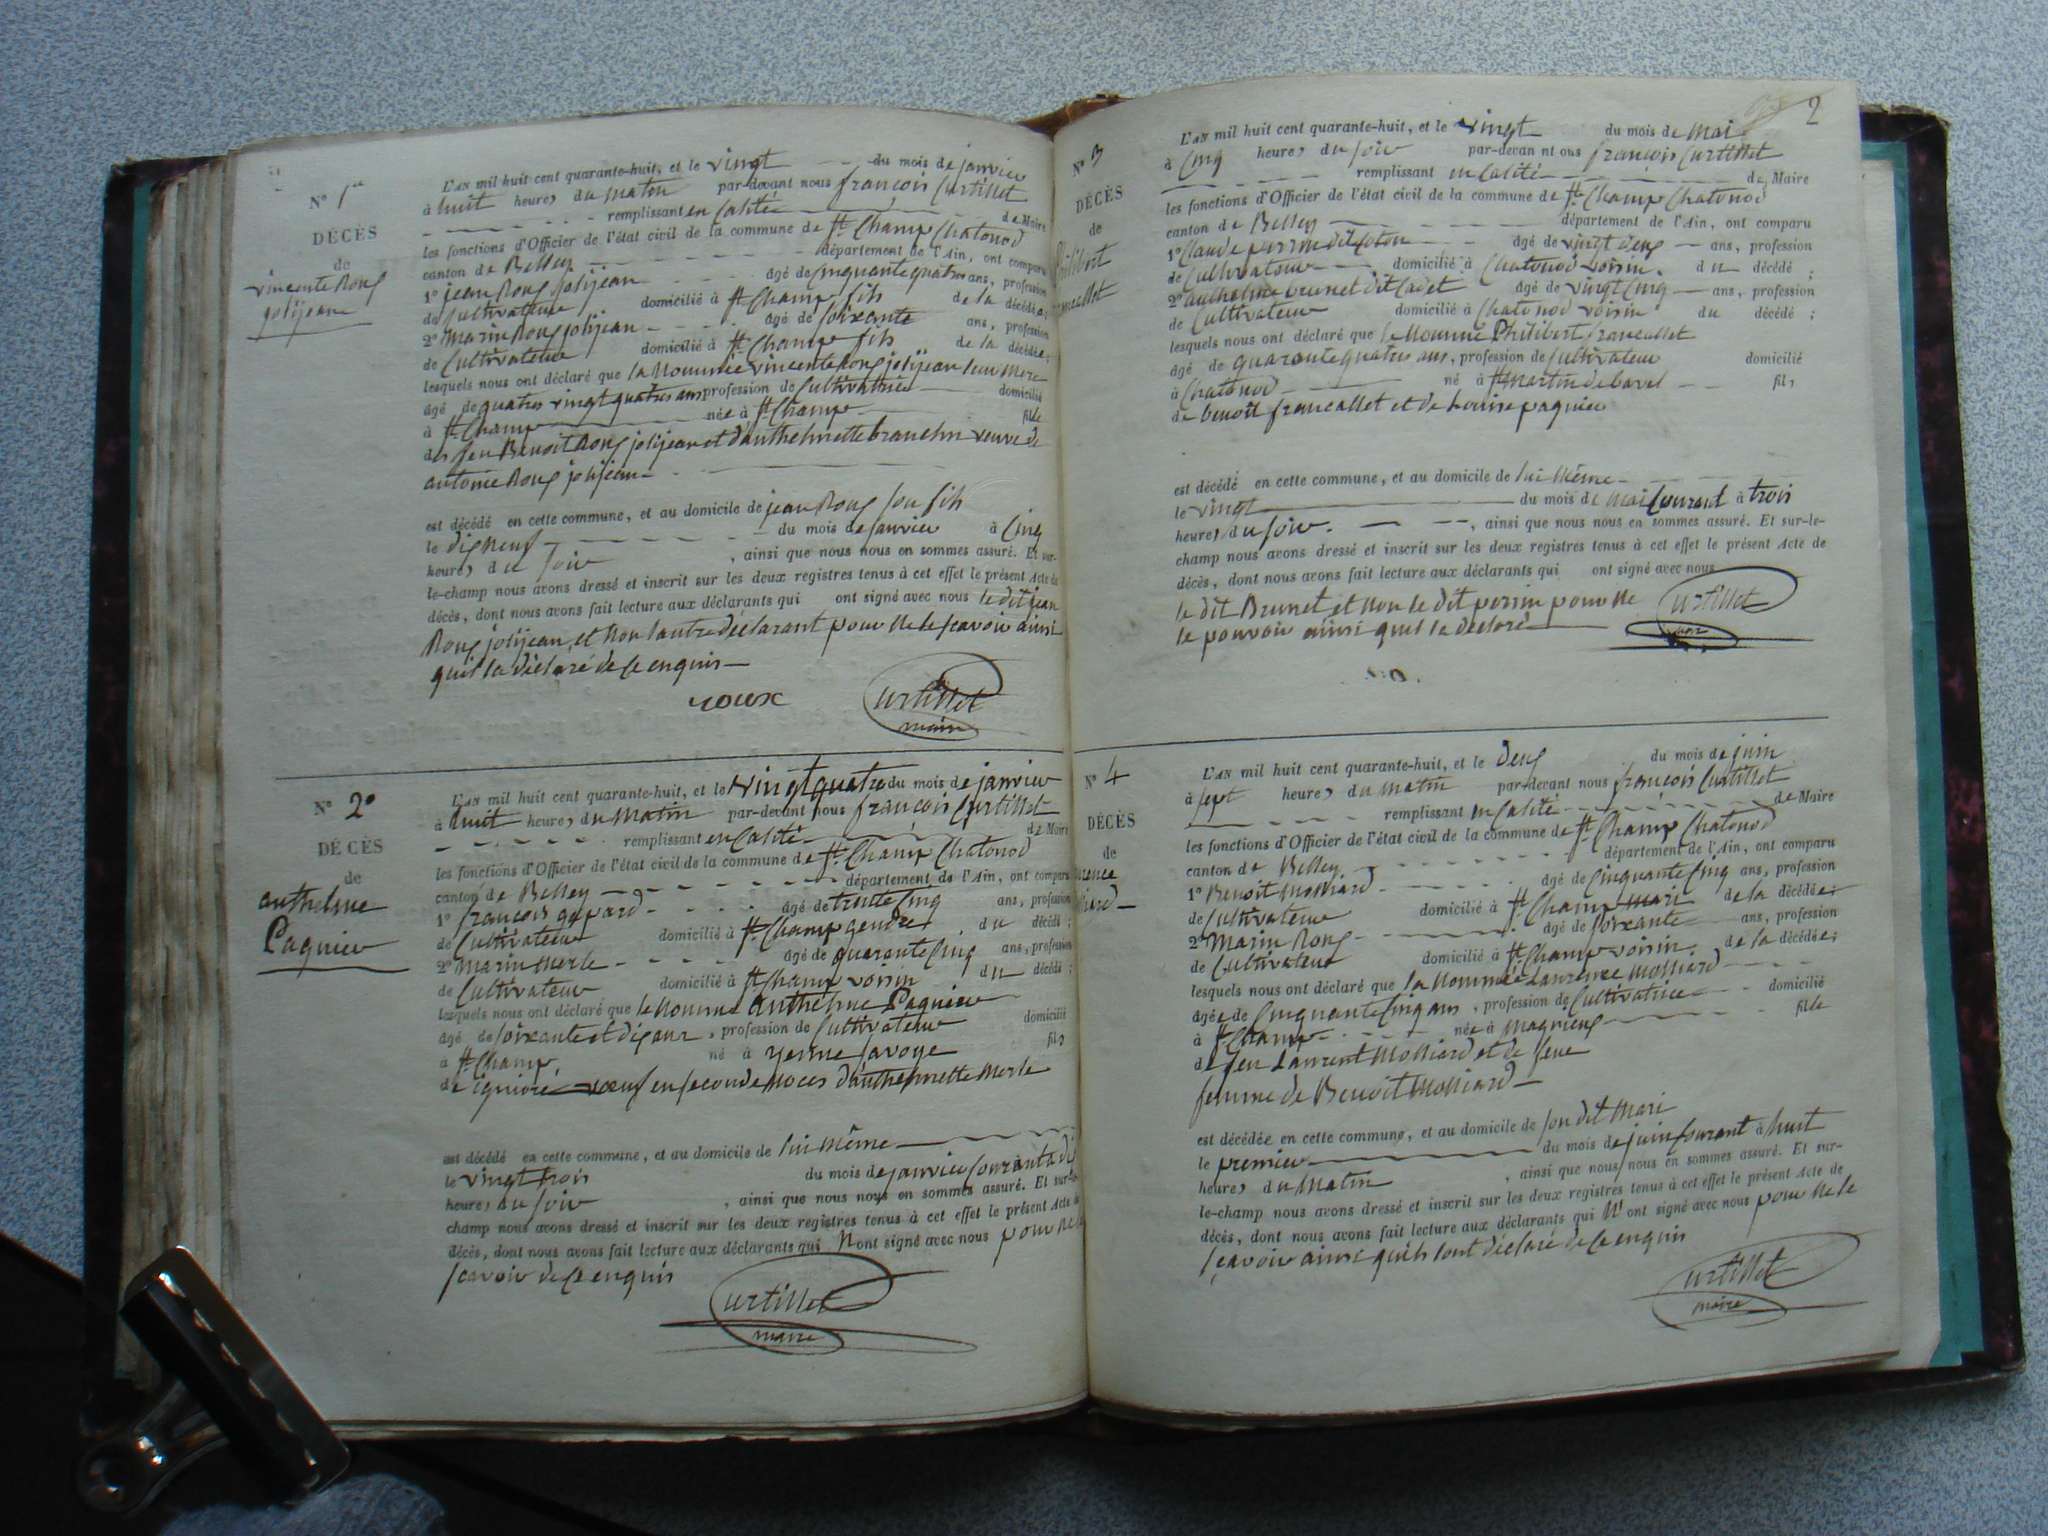 N° 1er
DÉCÈS
de
vincente Roux
jolijean
L'AN mil huit cent quarante-huit, et le vingt du mois de janvier
à huit heures du matin par-devant nous françois Curtillet
remplissant en calité de Maire
les fonctions d'Officier de l'état civil de la commune de St Champ Chatonod
canton de Belley département de l'Ain, ont comparu
1° jean Roux jolijean âgé de cinquante quatre ans, profession
de Cultivateur domicilié à St Champ fils de la décédée;
2° Marin Roux jolijean âgé de soixante ans, profession
de Cultivateur domicilié à St Champ fils de la décédée;
lesquels nous ont déclaré que la Nommée vincente Roux jolijean leur Mere
âgé de quatre vingt quatre ans profession de Cultivatrice domicilié
à St Champ née à St Champ fille
des feu Benoit Roux jolijean et d'anthelmette veuve de
antoine Roux jolijean
est décédé en cette commune, et au domicile de jean Roux son fils
le dix neuf du mois de janvier à cinq
heures du soir, ainsi que nous nous en sommes assuré. Et sur-
le-champ nous avons dressé et inscrit sur les deux registres tenus à cet effet le présent Acte de
décès, dont nous avons fait lecture aux déclarants qui ont signé avec nous le dit jean
Roux jolijean, et non l'autre déclarant pour ne le scavoir ainsi
quil la déclaré de ce enquis
roux Curtillet
maire
N° 2°
DÉCÈS
de
anthelme
Paquier
L'AN mil huit cent quarante-huit, et le vingt quatre du mois de janvier
à huit heures du matin par-devant nous françois Curtillet
remplissant en calité de Maire
les fonctions d'Officier de l'état civil de la commune de St Champ Chatonod
canton de Belley département de l'Ain, ont comparu
1° françois gapard âgé de trente cinq ans, profession
de Cultivateur domicilié à St Champ gendre du décédé;
2° Marin Merle âgé de quarante cinq ans, profession
de Cultivateur domicilié à St Champ voisin du décédé;
lesquels nous ont déclaré que le Nomme Anthelme Paquier
âgé de soixante et dix ans, profession de Cultivateur domicilié
à St Champ, né à yenne savoye fils
de ignoré, vœuf en seconde noces d'anthelmette Merle
est décédé en cette commune, et au domicile de lui même
le vingt trois du mois de janvier courant à di
heures du soir, ainsi que nous nous en sommes assuré. Et sur-le-
champ nous avons dressé et inscrit sur les deux registres tenus à cet effet le présent Acte de
décès, dont nous avons fait lecture aux déclarants qui N'ont signé avec nous pour ne le
scavoir de ce enquis
Curtillet
maire
2
N° 3
DÉCÈS
de
Philibert
francallet
L'AN mil huit cent quarante-huit, et le vingt du mois de Mai
à Cinq heures du soir par-devant nous françois Curtillet
remplissant en calité de Maire
les fonctions d'Officier de l'état civil de la commune de St Champ Chatonod
canton de Belley département de l'Ain, ont comparu
1° Claude perrin dit âgé de vingt deux ans, profession
de Cultivateur domicilié à Chatonod voisin. du décédé;
2° anthelme brunet dit Cadet âgé de vingt cinq ans, profession
de Cultivateur domicilié à Chatonod voisin du décédé;
lesquels nous ont déclaré que le Nommé Philibert francallet
âgé de quarante quatre ans, profession de Cultivateur domicilié
à Chatonod né à St Martin de bavel fils
de benoit francallet et de Louise paquier
est décédé en cette commune, et au domicile de lui même
le vingt du mois de Mai Courant à trois
heures du soir, ainsi que nous nous en sommes assuré. Et sur-le-
champ nous avons dressé et inscrit sur les deux registres tenus à cet effet le présent Acte de
décès, dont nous avons fait lecture aux déclarants qui ont signé avec nous
le dit Brunet et non le dit perrin pour ne
le pouvoir ainsi quil la déclaré Curtillet
N° 4
DÉCÈS
de
L'AN mil huit cent quarante-huit, et le deux du mois de juin
à sept heures du matin par-devant nous françois Curtillet
remplissant en calité de Maire
les fonctions d'Officier de l'état civil de la commune de St Champ Chatonod
canton de Belley département de l'Ain, ont comparu
1° Benoit Molliard âgé de Cinquante Cinq ans, profession
de Cultivateur domicilié à St Champ mari de la décédée;
2° Marin Roux âgé de soixante ans, profession
de Cultivateur domicilié à St Champ voisin de la décédée;
lesquels nous ont déclaré que la Nommée Laurence Molliard
âgée de Cinquante Cinq ans, profession de Cultivatrice domicilié
à St Champ née à magnieux fille
de feu Laurent Molliard et de
femme de Benoit Molliard
est décédée en cette commune, et au domicile de son dit Mari
le premier du mois de juin courant à huit
heures du Matin, ainsi que nous nous en sommes assuré. Et sur-
le-champ nous avons dressé et inscrit sur les deux registres tenus à cet effet le présent Acte de
décès, dont nous avons fait lecture aux déclarants qui N'ont signé avec nous pour Ne le
scavoir ainsi quils lont déclaré de ce enquis
Curtillet
maire